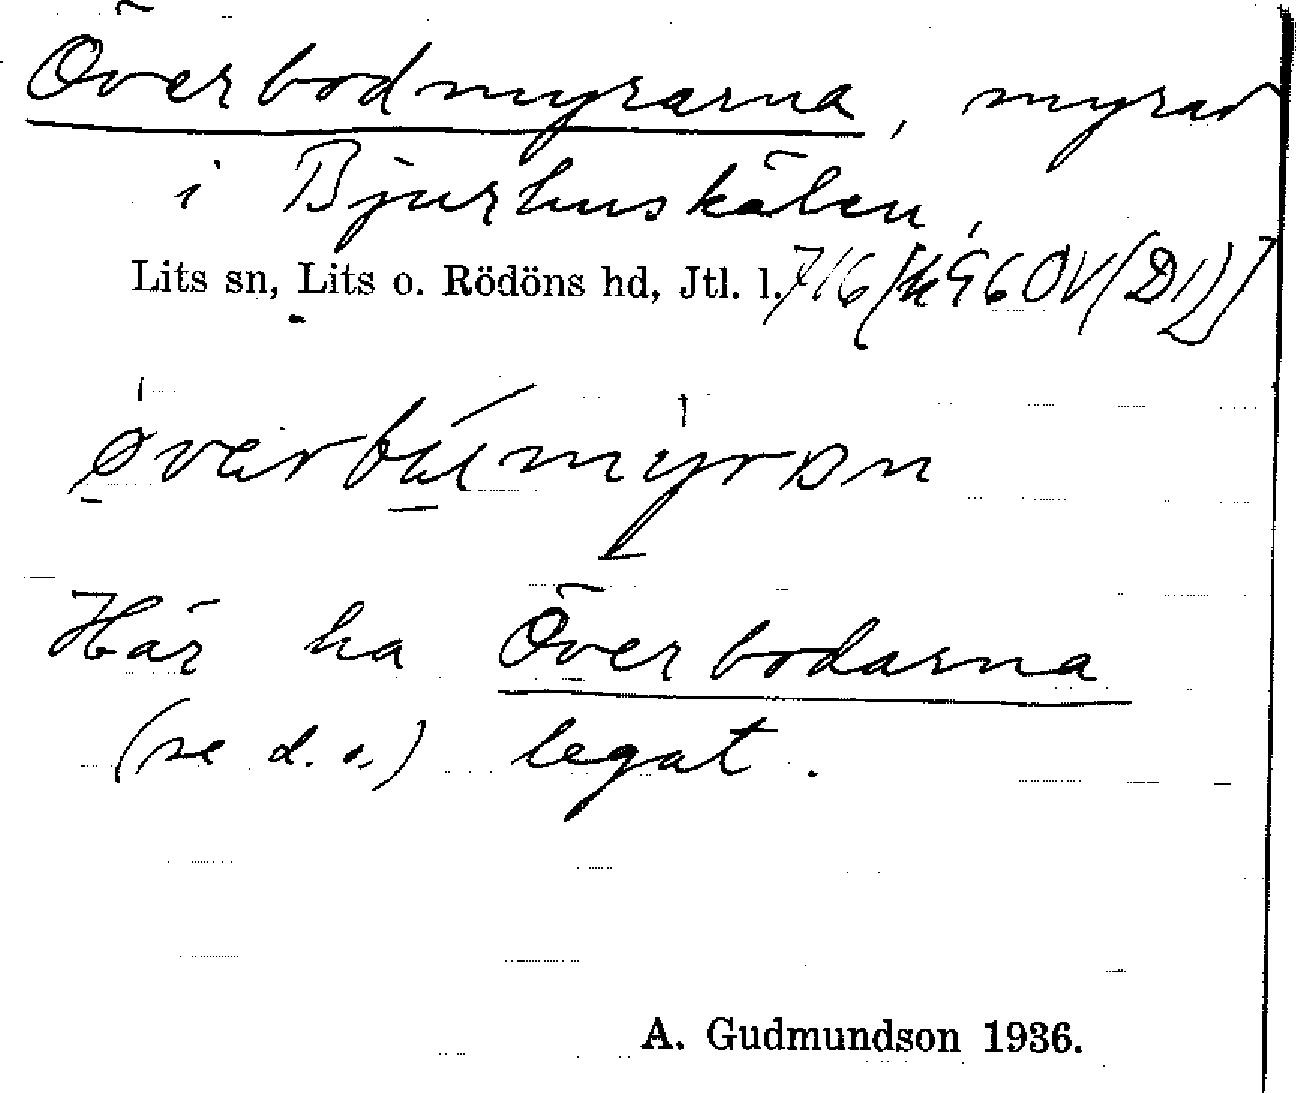 Överbodmyrarna, myrar
i Bjurhuskälen,
Lits sn, Lits o. Rödöns hd, Jtl. l.
Här ha Överbodarna
(se d. o.) legat.
A. Gudmundson 1936.